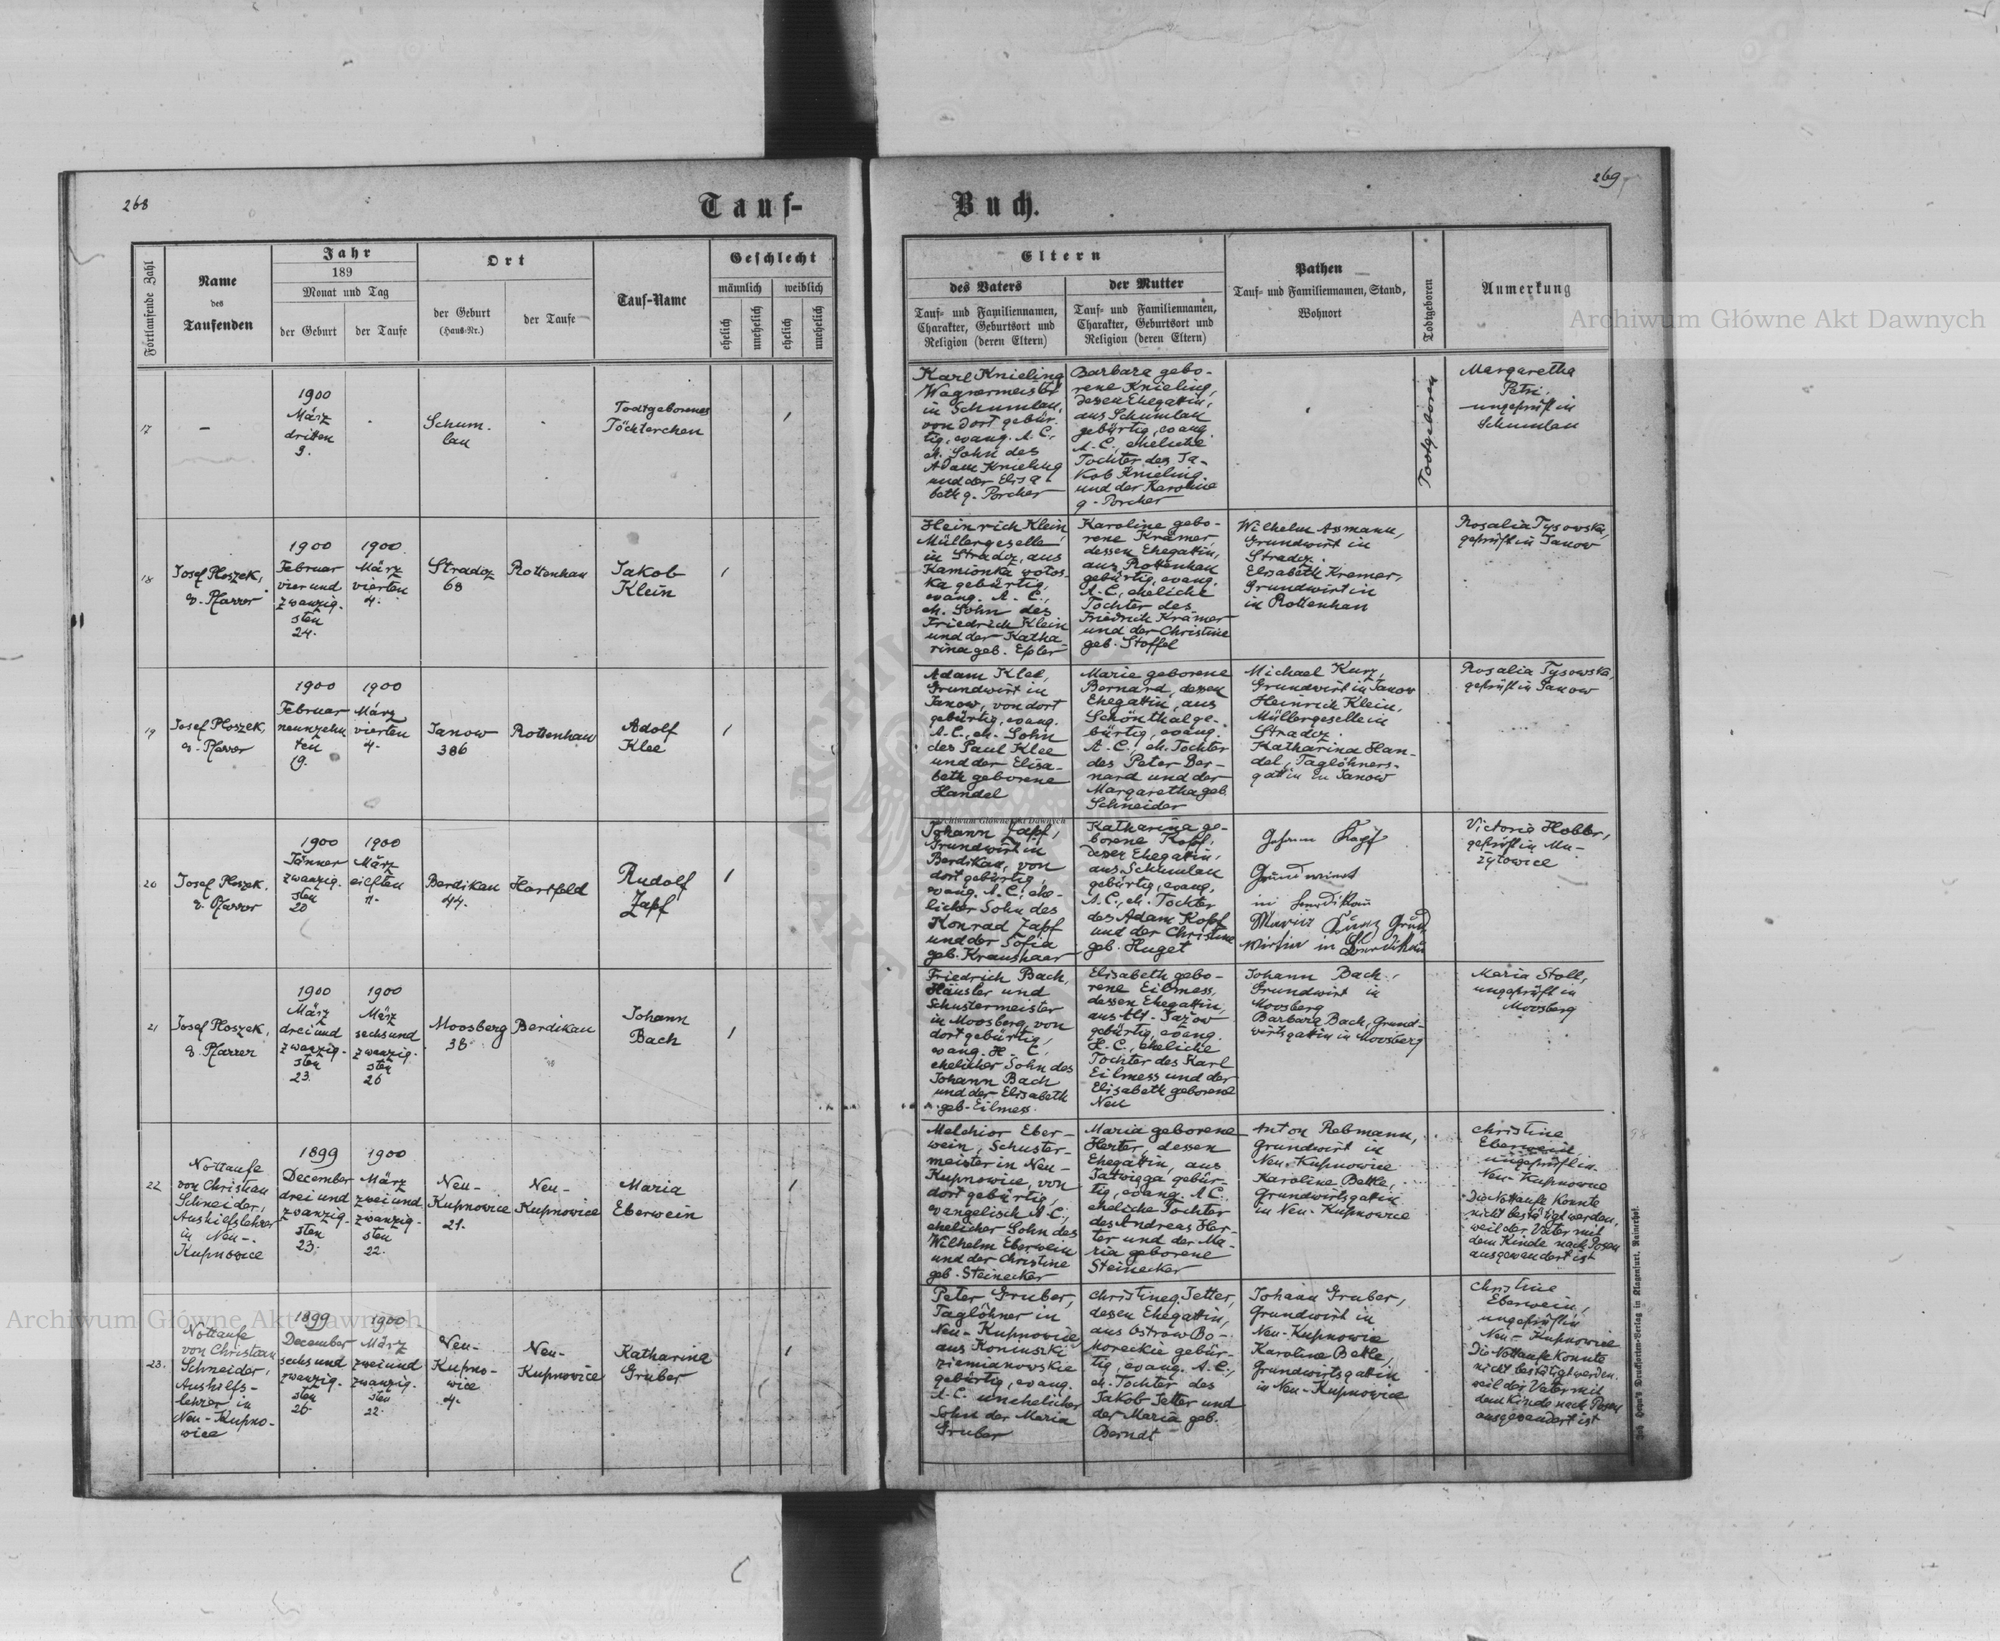 268
Tauf-
Fortlaufende Zahl
Name
des
Taufenden
Jahr
189
Monat und Tag
der Geburt
der Taufe
Ort
der Geburt
(Haus-Nr.)
der Taufe
Tauf-Name
Geschlecht
männlich
weiblich
ehelich
unehelich
ehelich
unehelich
17
–
1900
März
dritten
3.
Schum-
lau
Todtgeborenes
Töchterchen
1
18
Josef Ploszek,
e. Pfarrer
1900
Februar
vier und
zwanzig-
sten
24.
1900
März
vierten
4.
Stradcz
68
Rottenhan
Jakob
Klein
1
19
Josef Ploszek,
e. Pfarrer
1900
Februar
neunzehn
ten
19.
1900
März
vierten
4.
Janow
386
Rottenhan
Adolf
Klee
1
20
Josef Ploszek.
e. Pfarrer
1900
Jänner
zwanzig-
sten
20
1900
März
eilften
11.
Berdikau
44.
Hartfeld
Rudolf
Zapf
1
21
Josef Ploszek,
e. Pfarrer
1900
März
drei und
zwanzig-
sten
23.
1900
März
sechsund
zwanzig-
sten
26
Moosberg
38
Berdikau
Johann
Bach
1
22
Nottaufe
von Christian
Schneider,
Aushilfslehrer
in Neu-
Kupnowice
1899
December
drei und
zwanzig-
sten
23.
1900
März
zwei und
zwanzig-
sten
22.
Neu-
Kupnowice
21.
Neu-
Kupnowice
Maria
Eberwein
1
23.
Nottaufe
von Christian
Schneider,
Aushilfs-
lehrer in
Neu-Kupno-
wice
1899
December
sechs und
zwanzig-
sten
26
1900
März
zwei und
zwanzig-
sten
22.
Neu-
Kupno-
wice
4.
Neu-
Kupnowice
Katharina
Gruber
1
269
Buch.
Eltern
des Vaters
Tauf- und Familiennamen,
Charakter, Geburtsort und
Religion (deren Eltern)
der Mutter
Tauf- und Familiennamen,
Charakter, Geburtsort und
Religion (deren Eltern)
Pathen
Tauf- und Familiennamen, Stand,
Wohnort
Todtgeboren
Anmerkung
Karl Knieling
Wagnermeister
in Schumlau,
von dort gebür-
tig, evang. A. C.,
eh. Sohn des
Adam Knieling
und der Elisa-
beth g. Porcher
Barbara gebo-
rene Knieling,
dessen Ehegattin,
aus Schumlau
gebürtig, evang.
A. C., eheliche
Tochter des Ja-
kob Knieling
und der Karoline
g. Porcher
Todtgeboren
Margaretha
Petri,
ungeprüft in
Schumlau
Heinrich Klein,
Müllergeselle
in Stradcz, aus
Kamionka wolos-
ka gebürtig,
evang. A. C.,
eh. Sohn des
Friedrich Klein
und der Katha-
rina geb. Epler
Karoline gebo-
rene Krämer,
dessen Ehegattin,
aus Rottenhan
gebürtig, evang.
A. C., eheliche
Tochter des
Friedrich Krämer
und der Christine
geb. Stoffel
Wilhelm Assmann,
Grundwirt in
Stradcz.
Elisabeth Kramer,
Grundwirtin
in Rottenhan
Rosalia Tysowska,
geprüft in Janow
Adam Klee,
Grundwirt in
Janow, von dort
gebürtig, evang.
A. C., eh. Sohn
des Paul Klee
und der Elisa-
beth geborene
Handel
Marie geborene
Bernard, dessen
Ehegattin, aus
Schönthal ge-
bürtig, evang.
A. C., eh. Tochter
des Peter Ber-
nard und der
Margaretha geb.
Schneider
Michael Kurz,
Grundwirt in Janow
Heinrich Klein,
Müllergeselle in
Stradcz.
Katharina Han-
del, Taglöhners-
gattin in Janow
Rosalia Tysowska,
geprüft in Janow
Johann Zapf,
Grundwirt in
Berdikau, von
dort gebürtig,
evang. A. C., ehe-
licher Sohn des
Konrad Zapf
und der Sofia
geb. Kraushaar
Katharina ge-
borene Kopf,
dessen Ehegattin,
aus Schumlau
gebürtig, evang.
A. C., eh. Tochter
des Adam Kopf
und der Christine
geb. Huget
Grundwirt
in Berdikau
Kurz Grund
wirtin in Berdikau
Victoria Hobler,
geprüft in Mu-
żyłowice
Friedrich Bach,
Häusler und
Schustermeister
in Moosberg, von
dort gebürtig,
evang. H. C.,
ehelicher Sohn des
Johann Bach
und der Elisabeth
geb. Eilmess.
Elisabeth gebo-
rene Eilmess,
dessen Ehegattin,
aus Alt-Jazow
gebürtig, evang.
H. C., eheliche
Tochter des Karl
Eilmess und der
Elisabeth geborene
Neu
Johann Bach,
Grundwirt in
Moosberg
Barbara Bach, Grund-
wirtsgattin in Moosberg
Maria Stoll,
ungeprüft in
Moosberg
Melchior Eber-
wein, Schuster-
meister in Neu-
Kupnowice, von
dort gebürtig,
evangelisch A. C.,
ehelicher Sohn des
Wilhelm Eberwein
und der Christine
geb. Steinecker
Maria geborene
Herter, dessen
Ehegattin, aus
Jatwigga gebür-
tig, evang. A. C.
eheliche Tochter
des Andreas Her-
ter und der Ma-
ria geborene
Steinecker
Anton Rebmann,
Grundwirt in
Neu-Kupnowice
Karoline Betke,
Grundwirtsgattin
in Neu-Kupnowice
Christine
Eberwein
ungeprüft in
Neu-Kupnowice
Die Nottaufe konnte
nicht bestätigt werden,
weil der Vater mit
dem Kinde nach Posen
ausgewandert ist
Peter Gruber,
Taglöhner in
Neu-Kupnowice
aus Koniuszki
ziemianowskie
gebürtig, evang.
A. C. unehelicher
Sohn der Maria
Gruber
Christine g. Jetter,
dessen Ehegattin,
aus Ostrow Bo-
horeckie gebür-
tig, evang. A. C.,
eh. Tochter des
Jakob Jetter und
der Maria geb.
Berndt
Johann Gruber,
Grundwirt in
Neu-Kupnowice
Karoline Betke,
Grundwirtsgattin
in Neu-Kupnowice
Christine
Eberwein,
ungeprüft in
Neu-Kupnowice
Die Nottaufe konnte
nicht bestätigt werden
weil der Vater mit
dem Kinde nach Posen
ausgewandert ist
Drucksorten-Verlag in Klagenfurt,
Archiwum Główne Akt Dawnych
Archiwum Główne Akt Dawnych
Archiwum Główne Akt Dawnych